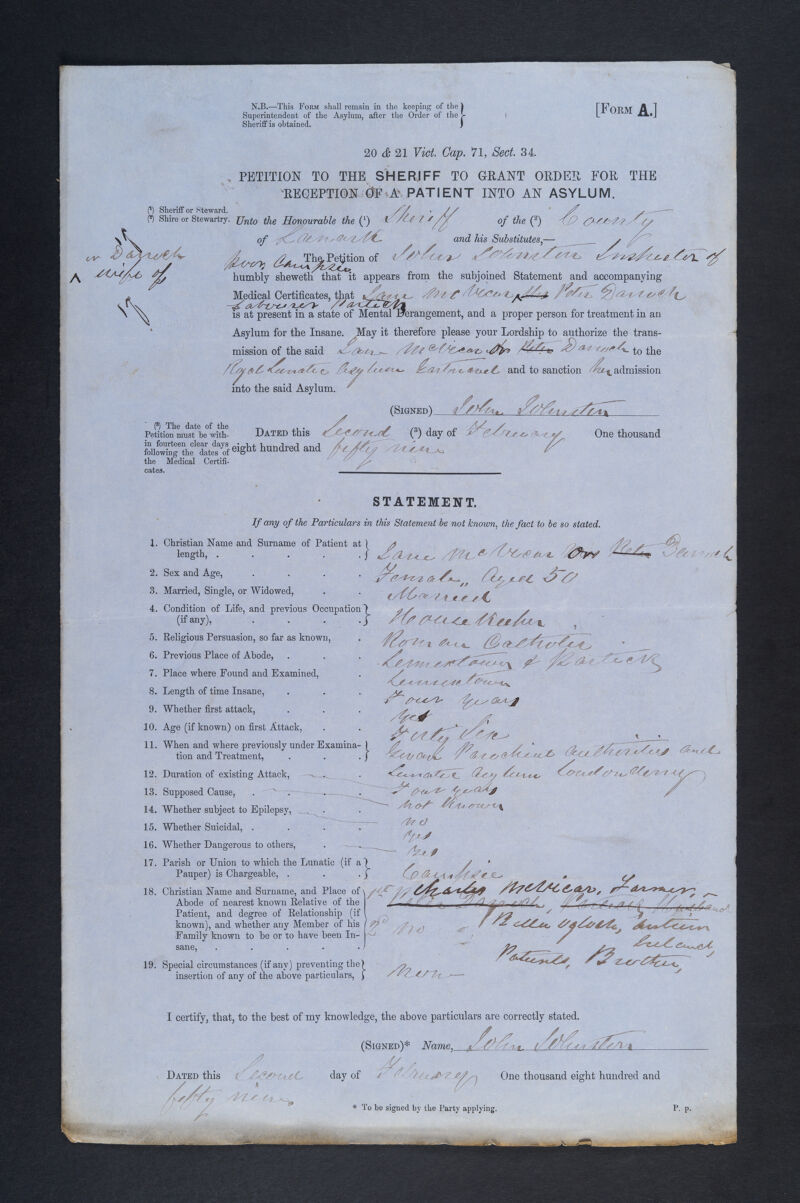 N.B.—This Form shall remain in the keeping of the
Superintendent of the Asylum, after the Order of the
Sheriff is obtained.
[Form A.]
20 & 21 Vict. Cap. 71, Sect. 34.
PETITION TO THE SHERIFF TO GRANT ORDER FOR THE
RECEPTION OF A PATIENT INTO AN ASYLUM.
(¹) Sheriff or Steward.
(²) Shire or Stewartry.
Unto the Honourable the (¹) Sheriff of the (²) County
of Lanark and his Substitutes,—
or Darroch
wife of
The Petition of John Johnston Inspector of
Poor, Campsie
humbly sheweth that it appears from the subjoined Statement and accompanying
Medical Certificates, that Jane McVicar Peter Darroch
Labourer Partick
is at present in a state of Mental Derangement, and a proper person for treatment in an
Asylum for the Insane. May it therefore please your Lordship to authorize the trans-
mission of the said Jane McVicar or Peter Darroch to the
Royal Lunatic Asylum Gartnavel and to sanction her admission
into the said Asylum.
(Signed) John Johnston
(³) The date of the
Petition must be with-
in fourteen clear days
following the dates of
the Medical Certifi-
cates.
Dated this Second (³) day of February One thousand
eight hundred and fifty nine
STATEMENT.
If any of the Particulars in this Statement be not known, the fact to be so stated.
1. Christian Name and Surname of Patient at
length, . . . . . . Jane McVicar or Peter Darroch
2. Sex and Age, . . . . Female, Aged 50
3. Married, Single, or Widowed, . . Married
4. Condition of Life, and previous Occupation
(if any), . . . . . House Keeper
5. Religious Persuasion, so far as known, . Roman Catholic
6. Previous Place of Abode, . . . Lennoxtown & Partick
7. Place where Found and Examined, . Lennoxtown
8. Length of time Insane, . . . Four years
9. Whether first attack, . . . Yes
10. Age (if known) on first Attack, . . Forty Six
11. When and where previously under Examina-
tion and Treatment, . . . Govan Parochial authorities and
Lunatic Asylum Londonderry
12. Duration of existing Attack, . Four years
13. Supposed Cause, . . . . not Known
14. Whether subject to Epilepsy, . . no
15. Whether Suicidal, . . . . Yes
16. Whether Dangerous to others, . . Yes
17. Parish or Union to which the Lunatic (if a
Pauper) is Chargeable, . . . . Campsie
18. Christian Name and Surname, and Place of
Abode of nearest known Relative of the
Patient, and degree of Relationship (if
known), and whether any Member of his
Family known to be or to have been In-
sane, . . . . . .
1st Charles McVicar, Farmer,
Peter Darroch, Partick Husband
2nd no
Antrim
Ireland,
Patients, Brother,
19. Special circumstances (if any) preventing the
insertion of any of the above particulars, None
I certify, that, to the best of my knowledge, the above particulars are correctly stated.
(Signed)* Name, John Johnston
Dated this Second day of February One thousand eight hundred and
fifty nine
* To be signed by the Party applying.
P. p.